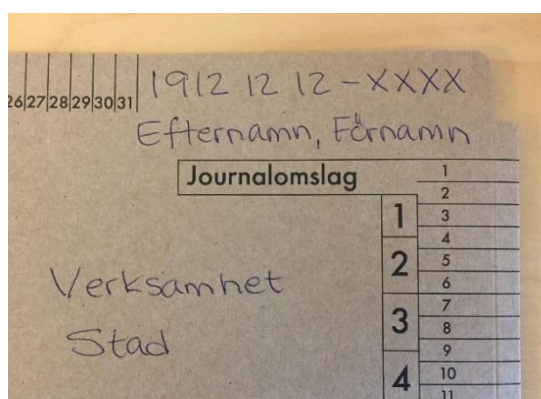 26 27 28 29 30 31
1912 12 12-XXXX
Efternamn, Förnamn
Journalomslag
1
2
3
4
5
6
7
8
9
10
11
1
2
3
4
Verksamhet
Stad